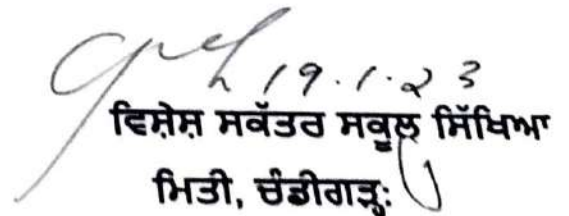 19.1.23
ਵਿਸ਼ੇਸ਼ ਸਕੱਤਰ ਸਕੂਲ ਸਿੱਖਿਆ
ਮਿਤੀ, ਚੰਡੀਗੜ੍ਹ: